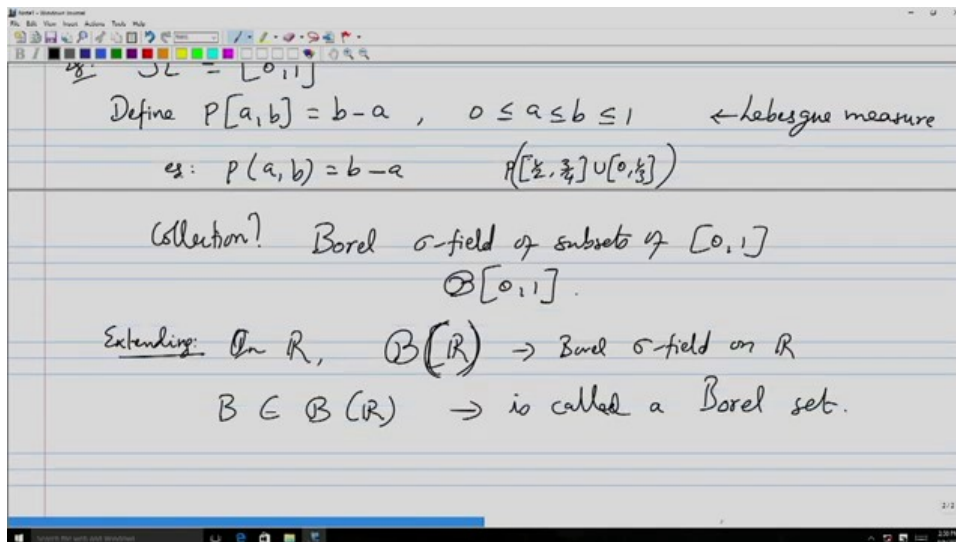 Note1 - Windows Journal
File Edit View Insert Actions Tools Help
B I
eg: Ω = [0,1]
Define P[a,b] = b-a , 0 ≤ a ≤ b ≤ 1 ← Lebesgue measure
eg: P(a,b) = b-a P([1/2, 3/4] ∪ [0, 1/3])
Collection? Borel σ-field of subsets of [0,1]
B[0,1].
Extending: On R, B(R) → Borel σ-field on R
B ∈ B(R) → is called a Borel set.
2/2
Search the web and Windows